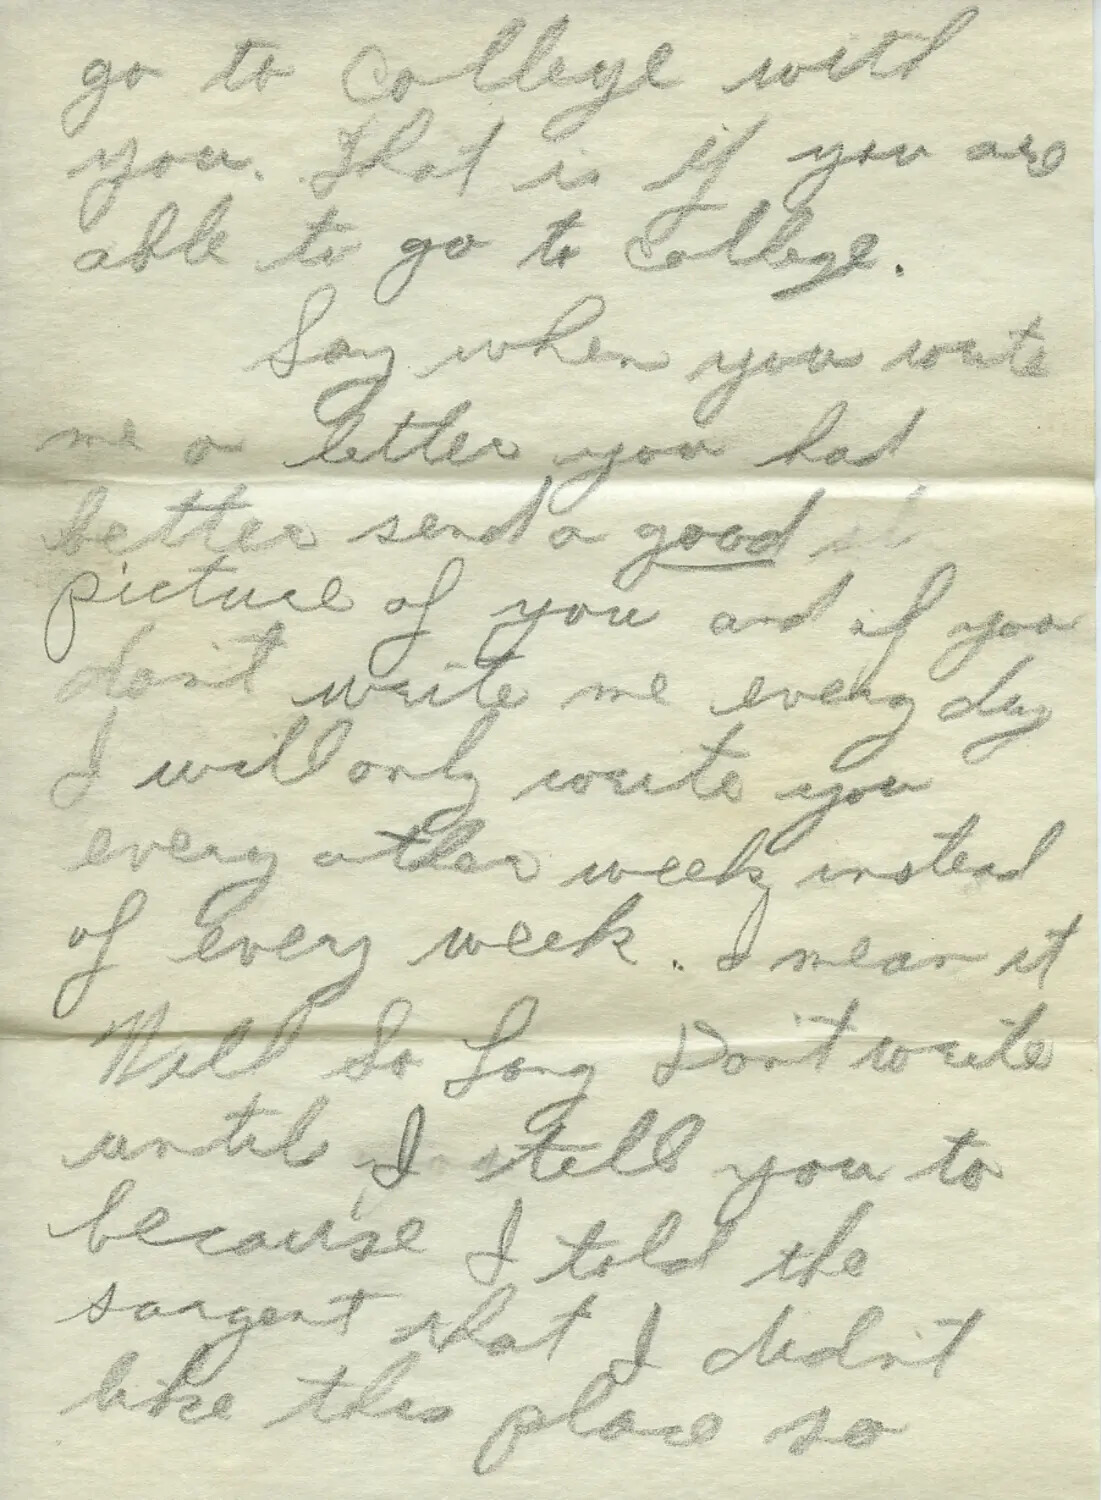 go to College with
you. That is if you are
able to go to College.
Say when you write
me a letter you had
better send a good
picture of you and if you
don't write me every day
I will only write you
every other week instead
of every week. I mean it
Well So Long Don't write
until I tell you to
because I told the
sargent that I didn't
like this place so